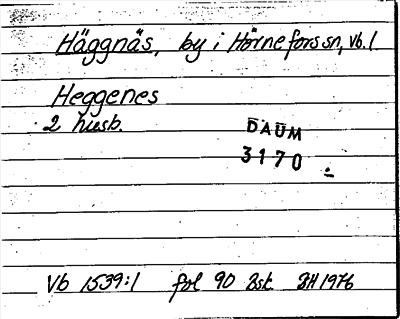 Häggnäs, by i Hörnefors sn, Vb. l
Heggenes
2 husb.
DAUM
3170
Vb 1539:1 fol 90 Bsk. BH 1976